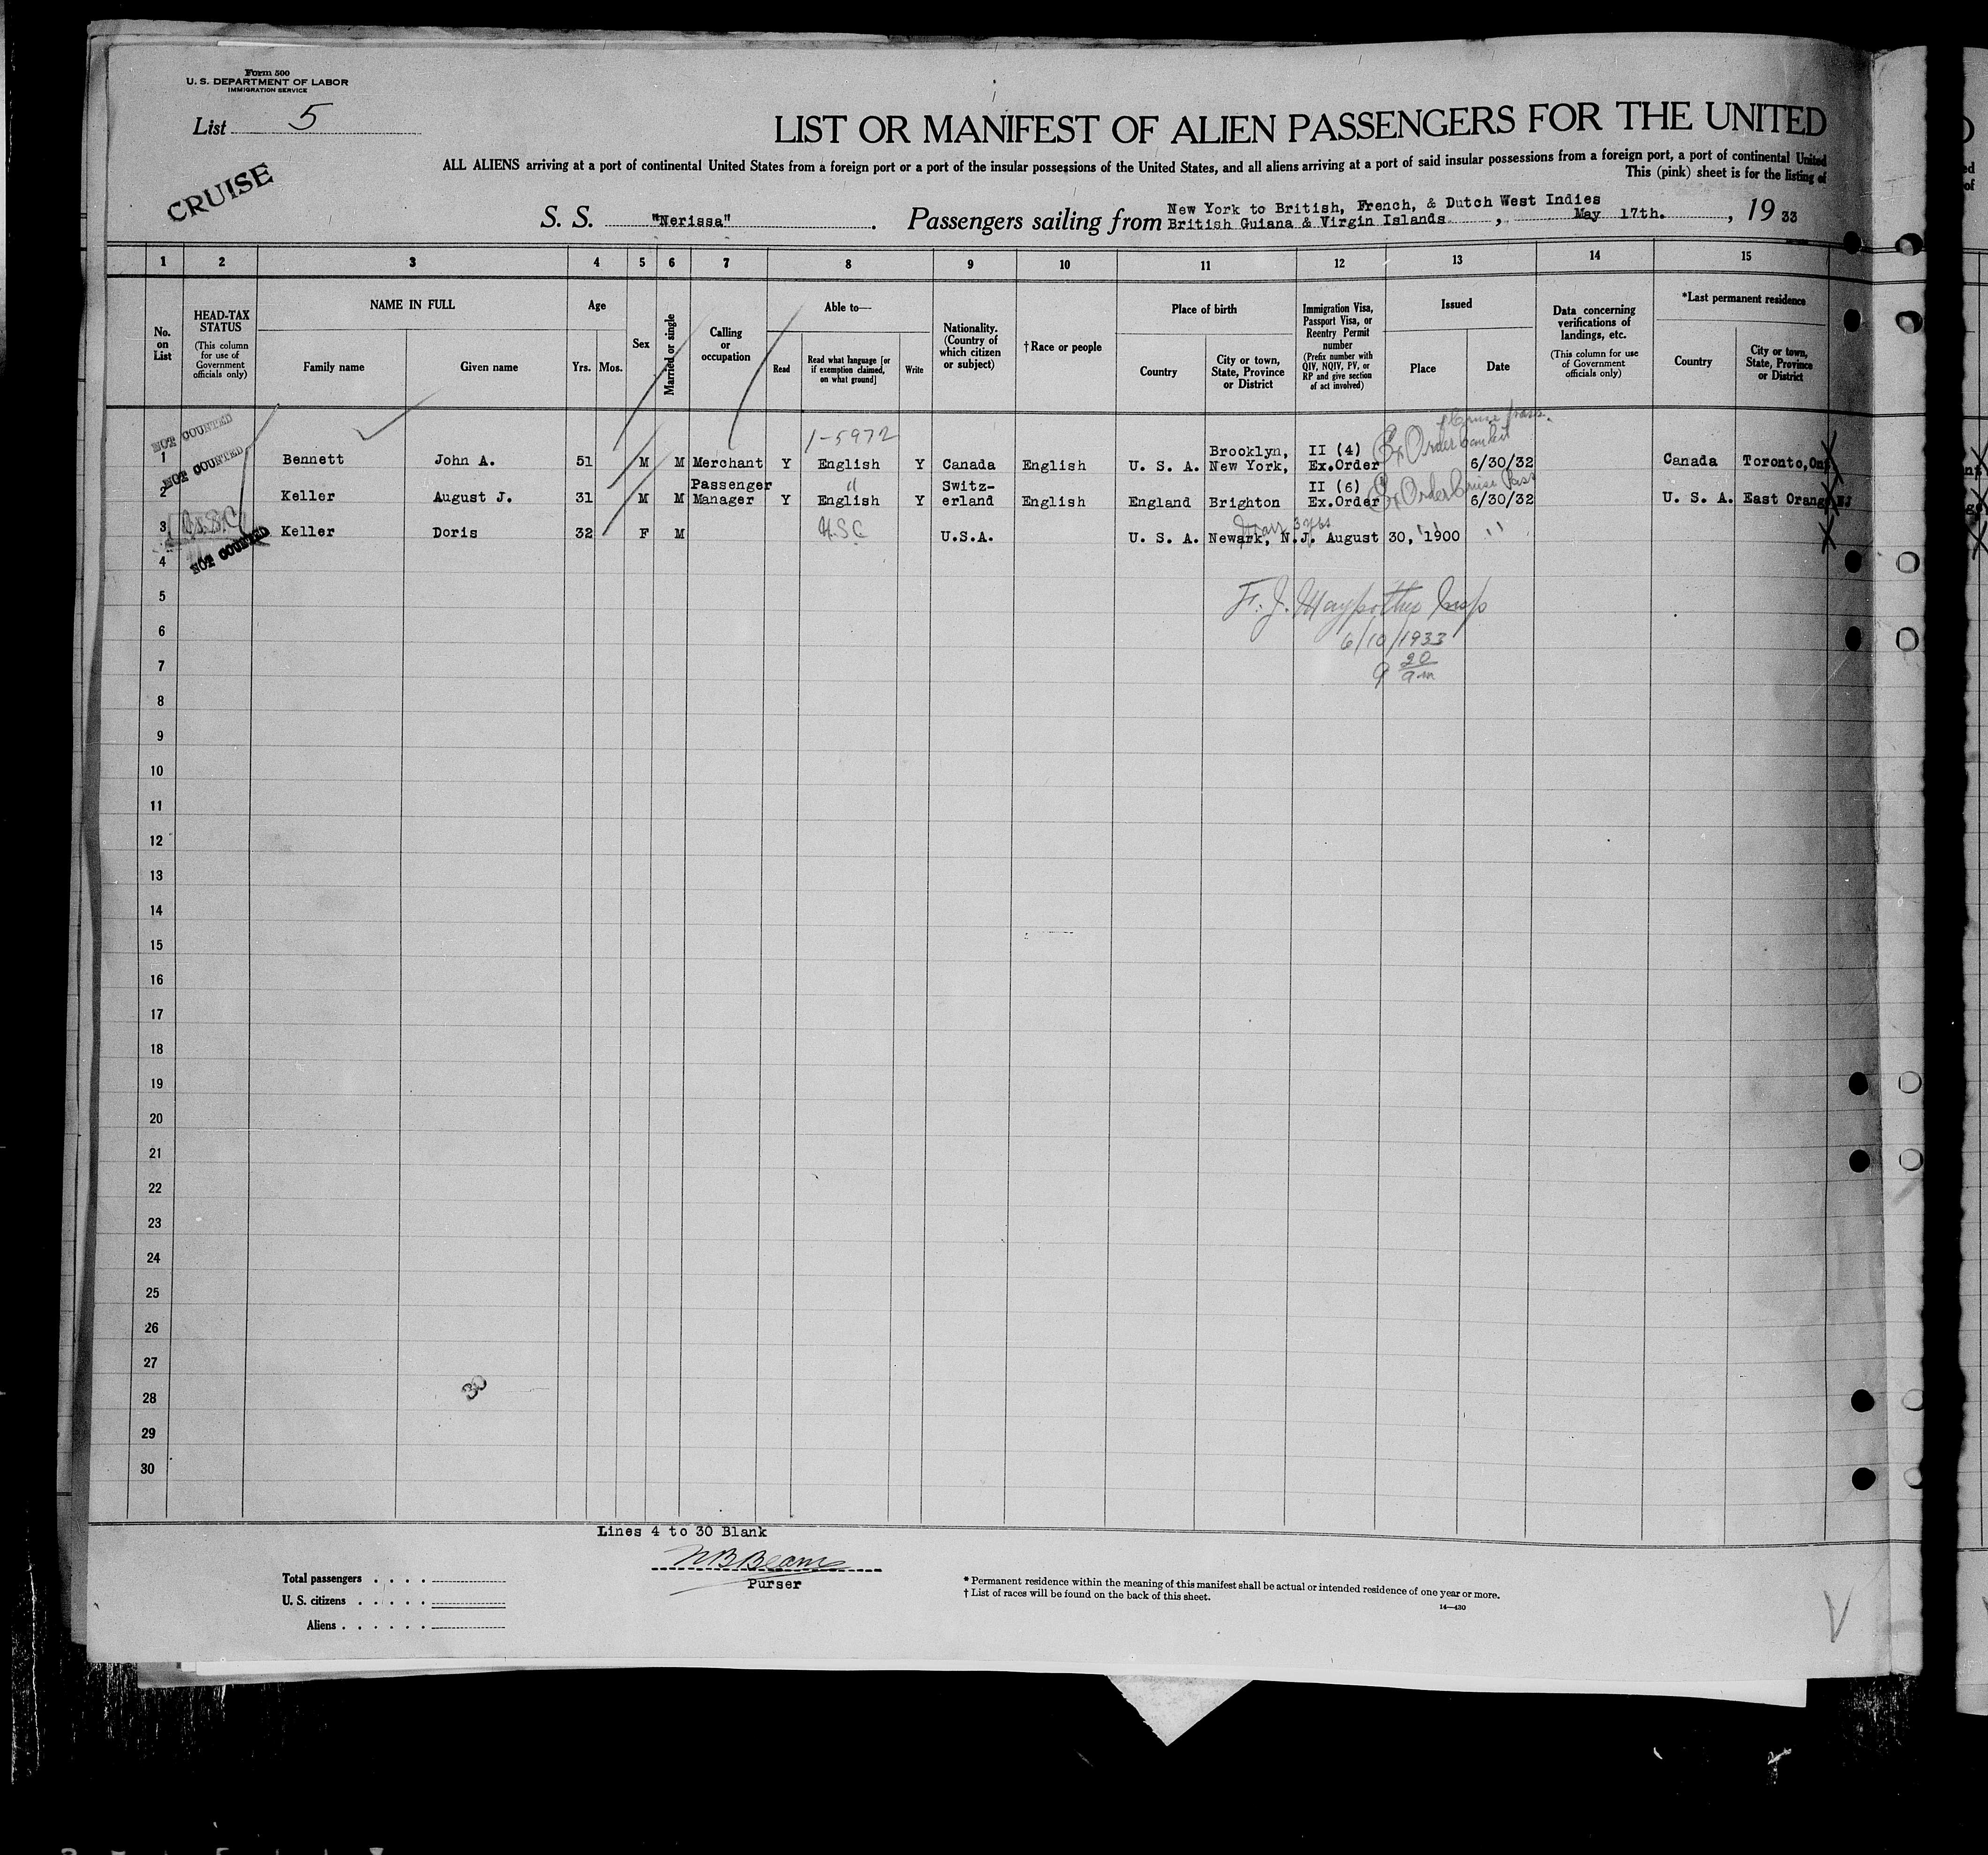 Form 500
U. S. DEPARTMENT OF LABOR
IMMIGRATION SERVICE
List 5
CRUISE
LIST OR MANIFEST OF ALIEN PASSENGERS FOR THE UNITED
ALL ALIENS arriving at a port of continental United States from a foreign port or a port of the insular possessions of the United States, and all aliens arriving at a port of said insular possessions from a foreign port, a port of continental United
This (pink) sheet is for the listing of
S. S. "Nerissa". Passengers sailing from New York to British, French, & Dutch West Indies
British Guiana & Virgin Islands, May 17th., 19 33
1 2 3 4 5 6 7 8 9 10 11 12 13 14 15
No. on List
HEAD-TAX STATUS
(This column for use of Government officials only)
NAME IN FULL
Family name
Given name
Age
Yrs. Mos.
Sex
Married or single
Calling or occupation
Able to—
Read
Read what language [or if exemption claimed, on what ground]
Write
Nationality. (Country of which citizen or subject)
†Race or people
Place of birth
Country
City or town, State, Province or District
Immigration Visa, Passport Visa, or Reentry Permit number
(Prefix number with QIV, NQIV, PV, or RP and give section of act involved)
Issued
Place
Date
Data concerning verifications of landings, etc.
(This column for use of Government officials only)
*Last permanent residence
Country
City or town, State, Province or District
NOT COUNTED
1-5972
1 Bennett John A. 51 M M Merchant Y English Y Canada English U. S. A. Brooklyn, New York, II (4) Ex.Order Ex Order 6/30/32 Canada Toronto, Ont
NOT COUNTED
2 Keller August J. 31 M M Passenger Manager Y English Y Switz-erland English England Brighton II (6) Ex.Order Ex Order Cruise Pass 6/30/32 U. S. A. East Orange NJ
3 USC Keller Doris 32 F M USC U.S.A. U. S. A. Newark, N.J. August 30, 1900
3 yrs
NOT COUNTED
4
5
F. J. Insp
6
6/10/1933
7
9 20 am
8
9
10
11
12
13
14
15
16
17
18
19
20
21
22
23
24
25
26
27
28
30
29
30
Lines 4 to 30 Blank
Purser
Total passengers . . . .
U. S. citizens . . . . .
Aliens . . . . . .
* Permanent residence within the meaning of this manifest shall be actual or intended residence of one year or more.
† List of races will be found on the back of this sheet.
14—430